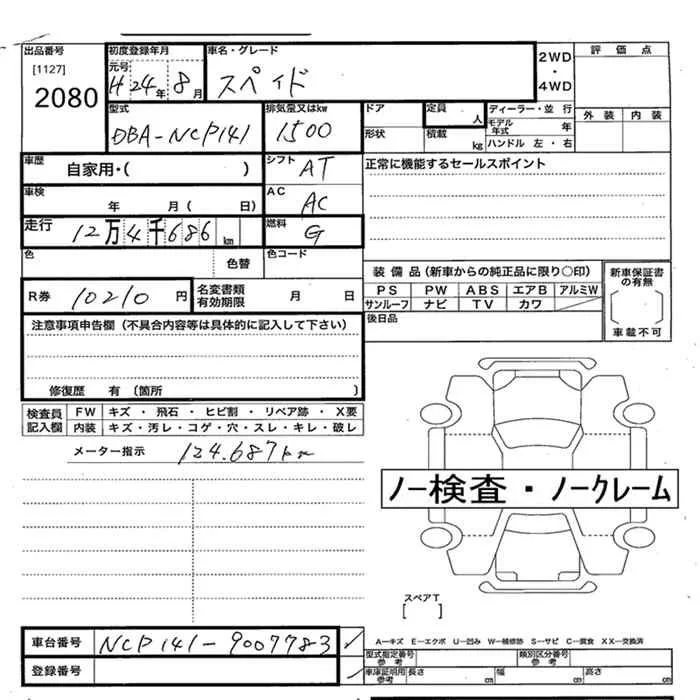 出品番号 初度登録年月 車名・グレード 2WD ・ 4WD 評価点
[1127] 元号
2080 H 24年 8月 スペイド
外装 内装
型式 排気量又はkw ドア 定員 人 ディーラー・並行
DBA-NCP141 1500 形状 積載 kg モデル年式 年
ハンドル 左・右
車歴 自家用・( ) シフト AT 正常に機能するセールスポイント
車検 年 月( 日) AC AC
走行 12万4千686km 燃料 G
色 色替 色コード
装備品(新車からの純正品に限り○印) 新車保証書の有無
R券 10210円 名変書類有効期限 月 日 PS PW ABS エアB アルミW
サンルーフ ナビ TV カワ [ ]
注意事項申告欄(不具合内容等は具体的に記入して下さい) 後日品 車載不可
修復歴 有 (箇所 )
検査員記入欄 FW キズ・飛石・ヒビ割・リペア跡・X要
内装 キズ・汚レ・コゲ・穴・スレ・キレ・破レ
メーター指示 124.687km
ノー検査・ノークレーム
スペアT
[ ]
車台番号 NCP141-9007783 ✓
A-キズ E-エクボ U-凹み W-補修跡 S-サビ C-腐食 XX-交換済
型式指定番号 参考 類別区分番号 参考
登録番号 ✓ 車庫証明用 参考 長さ cm 幅 cm 高さ cm